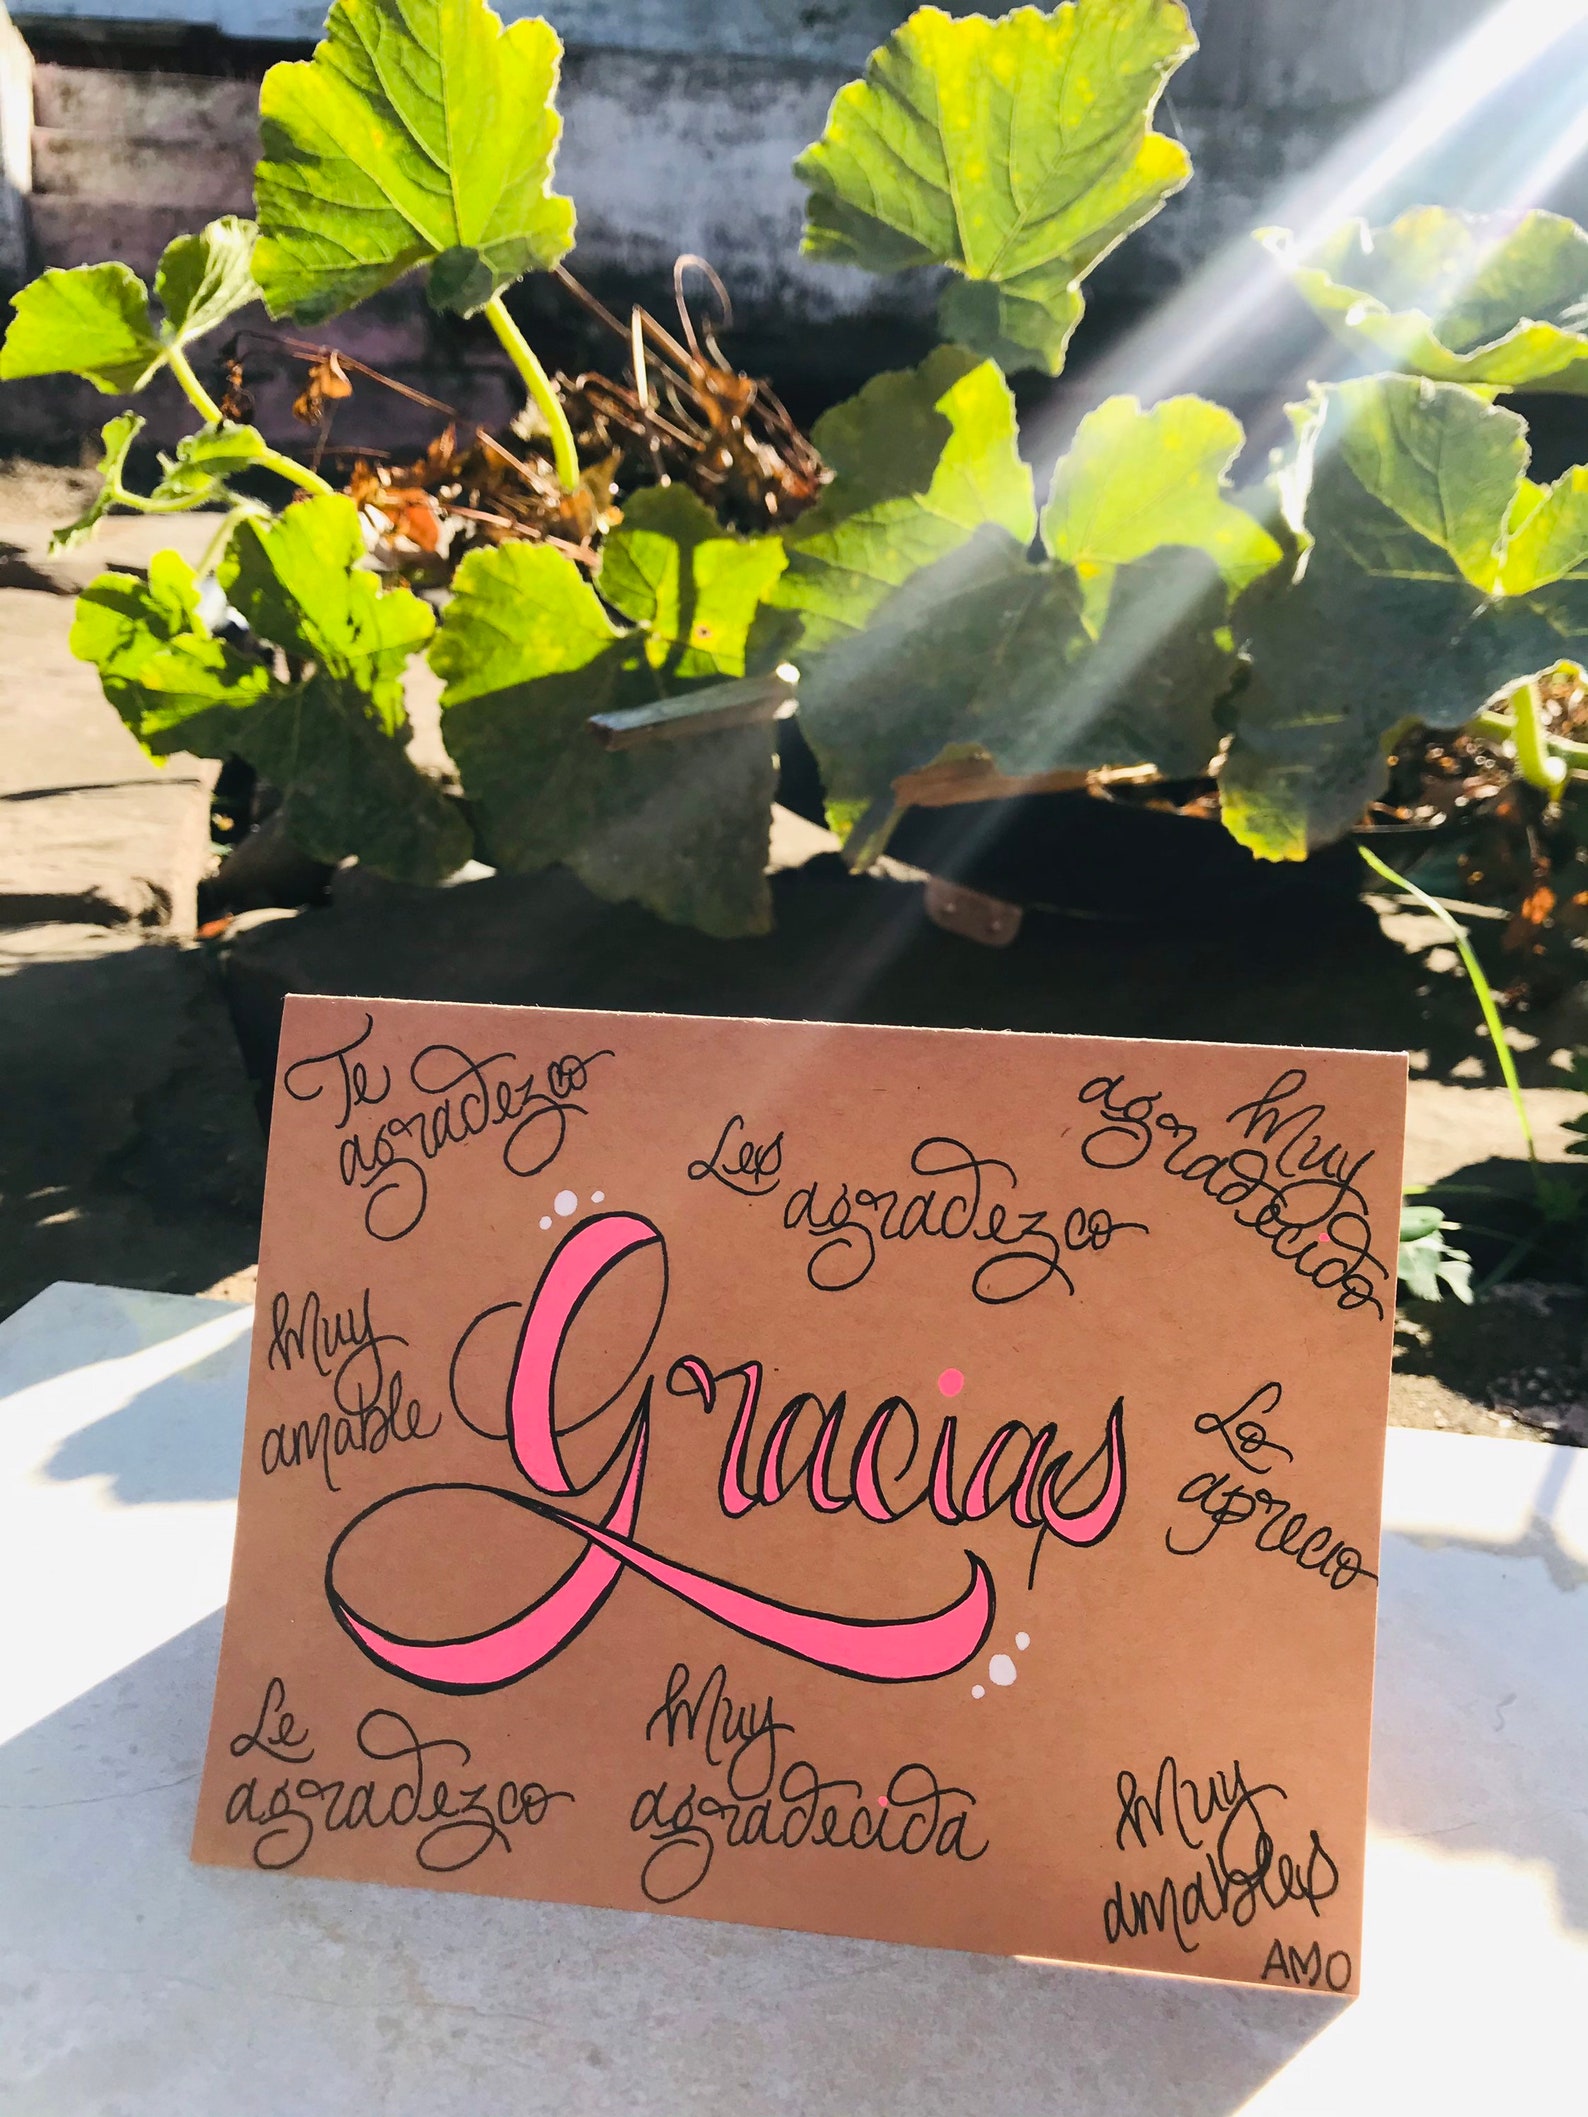 Te
agradezco
Les
agradezco
Muy
agradecido
Muy
amable
Gracias
Lo
aprecio
Le
agradezco
Muy
agradecida
Muy
amables
AMO